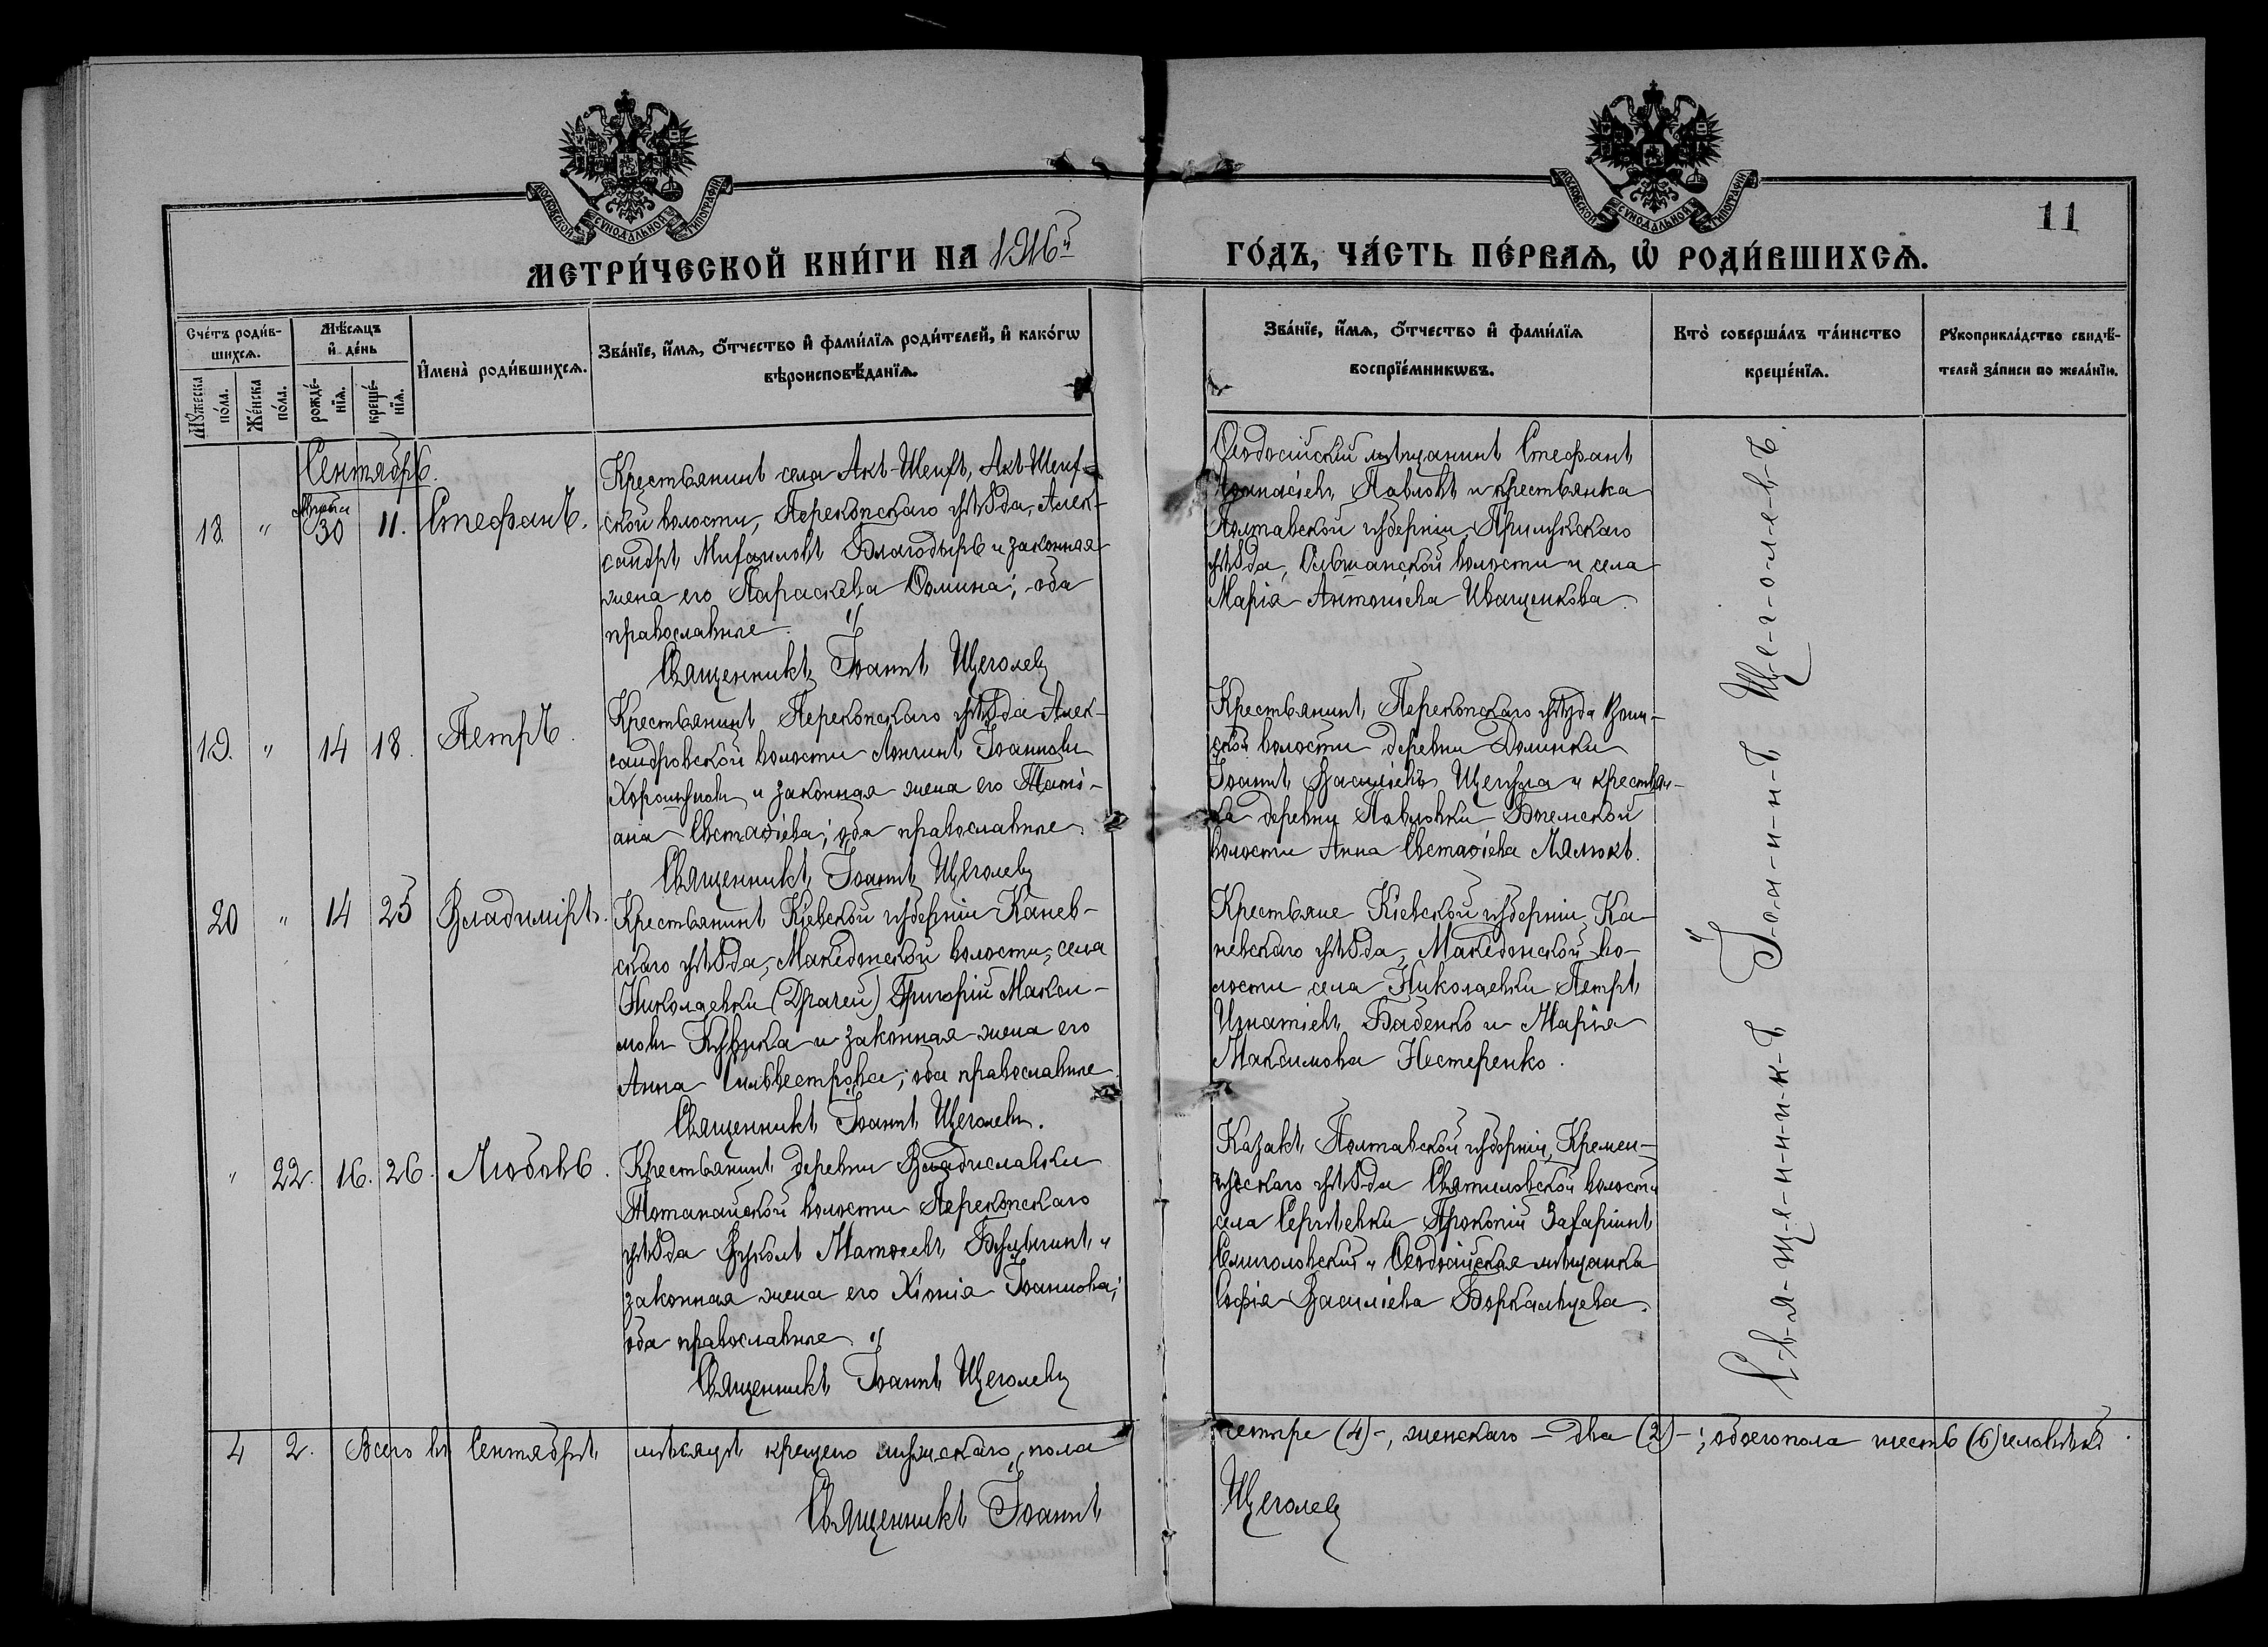 МОСКОВСКОЙ СУНОДАЛЬНОЙ ТИПОГРАФІИ
МОСКОВСКОЙ СУНОДАЛЬНОЙ ТИПОГРАФІИ
11
МЕТРИ́ЧЕСКОЙ КНИ́ГИ НА 1916й
ГО́ДЪ, ЧА́СТЬ ПЕ́РВАѦ, Ѡ҆ РОДИ́ВШИХСѦ.
Сче́тъ роди́в-
шихсѧ.
Мꙋ́жеска по́ла.
Же́нска по́ла.
Мѣ́сѧцъ
и҆ де́нь
рожде́-
нїѧ.
креще́-
нїѧ.
И҆мена̀ роди́вшихсѧ.
Зва́нїе, и҆́мѧ, о҆́тчество и҆ фами́лїѧ роди́телей, и҆ како́гѡ
вѣроисповѣ́данїѧ.
Зва́нїе, и҆́мѧ, о҆́тчество и҆ фами́лїѧ
воспрїе́мникѡвъ.
Кто̀ соверша́лъ та́инство
креще́нїѧ.
Рꙋкоприкла́дство свидѣ́-
телей за́писи по жела́нїю.
Сентябрь.
18 " Августа 30 11. Стефанъ.
Крестьянинъ села Акъ-Шейхъ, Акъ-Шейх-
ской волости, Перекопскаго уѣзда, Алек-
сандръ Михаиловъ Благодырь и законная
жена его Параскева Ѳомина; оба
православные.
Священникъ Іоаннъ Щеголевъ
Ѳеодосійскій мѣщанинъ Стефанъ
Аѳанасіевъ Павловъ и крестьянка
Полтавской губерніи, Прилукскаго
уѣзда, Ольшанской волости и села
Марія Антоніева Иващенкова.
19. " 14 18. Петръ.
Крестьянинъ Перекопскаго уѣзда Алек-
сандровской волости Лонгинъ Іоанновъ
Хорошуновъ и законная жена его Таті-
ана Евстаѳіева; оба православные.
Священникъ Іоаннъ Щеголевъ
Крестьянинъ Перекопскаго уѣзда
волости деревни Долинки
Іоаннъ Василіевъ и крестьян-
ка деревни Павловки
волости Анна Евстаѳіева Лялюкъ.
20 " 14 25 Владиміръ.
Крестьянинъ Кіевской губерніи Канев-
скаго уѣзда, Македонской волости, села
Николаевки (Драчей) Григорій Макси-
мовъ и законная жена его
Анна Сильвестрова; оба православные.
Священникъ Іоаннъ Щеголевъ.
Крестьяне Кіевской губерніи, Ка-
невскаго уѣзда, Македонской во-
лости села Николаевки Петръ
Игнатіевъ Бабенко и Марія
Максимова Нестеренко.
" 22. 16. 26. Любовь.
Крестьянинъ деревни Владиславки
Тотанайской волости Перекопскаго
уѣзда Вуколъ Матѳеевъ и
законная жена его Хіонія Іоаннова;
оба православные.
Священникъ Іоаннъ Щеголевъ
Казакъ Полтавской губерніи, Кремен-
чугскаго уѣзда волости
села Сергѣевки Прокопій Захаріинъ
и Ѳеодосійская мѣщанка
Софія Василіева
С-в-я-щ-е-н-н-и-к-ъ І-о-а-н-н-ъ Щ-е-г-о-л-е-в-ъ.
4 2. Всего въ Сентябрѣ мѣсяцѣ крещено мужскаго пола четыре (4)-, женскаго - два (2)-; обоего пола шесть (6) человѣкъ.
Священникъ Іоаннъ Щеголевъ